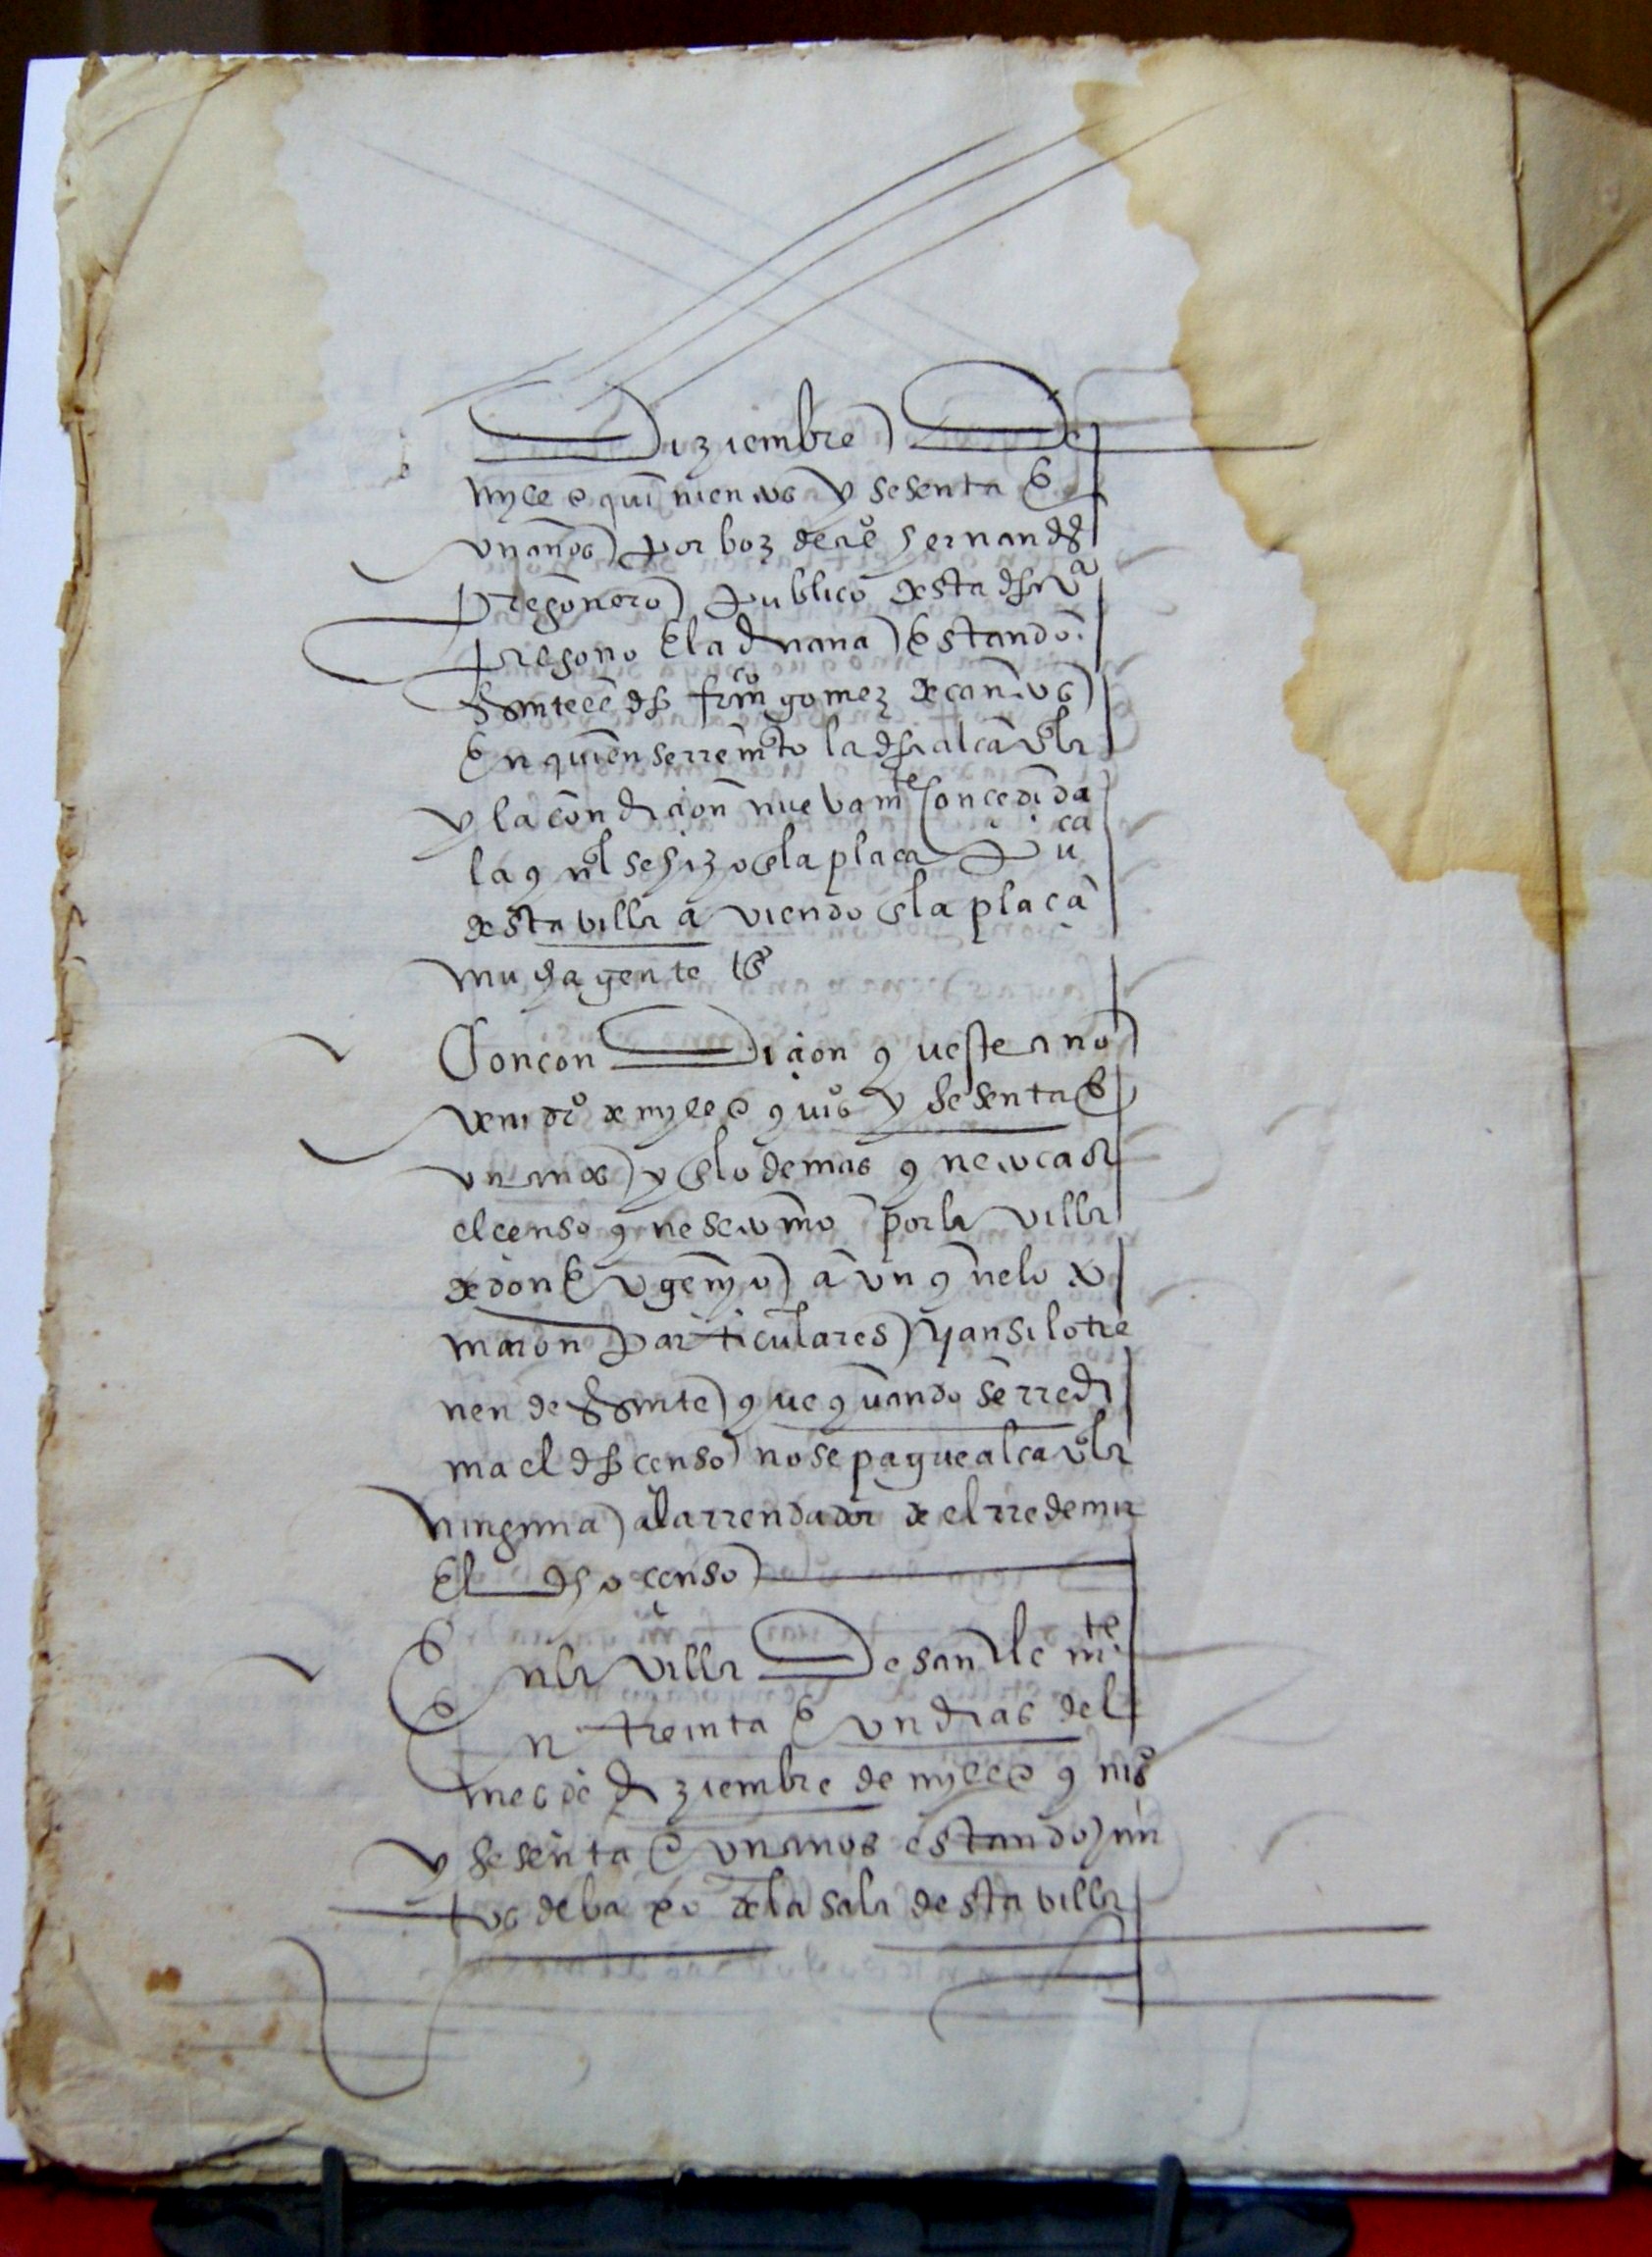 Diziembre De
mylle e quinientos y sesenta e
un años por boz de hernandes
pregonero publico desta dha va
pregono el aduana estando
dho franco gomez de cantos
En quien se rremato la dha alcavala
y la condicion nuevamte concedida
la qual se hizo en la plaça puca
desta villa aviendo en la plaça
mucha gente
Con condicion queste año
venidero de mylle e quios y sesenta e
un años y en lo demas que
el censo que se tomo por la villa
de don eugenyo aun que lo to
maron particulares y ansi lo tie
nen que quando se rredi
ma el dho censo no se pague alcavala
ninguna al arrendador de el rredemir
El dho censo
En la villa De san cle mte
En treinta e un dias del
mes de diziembre de mylle e quios
y sesenta e un años estando jun
tos debaxo de la sala desta villa